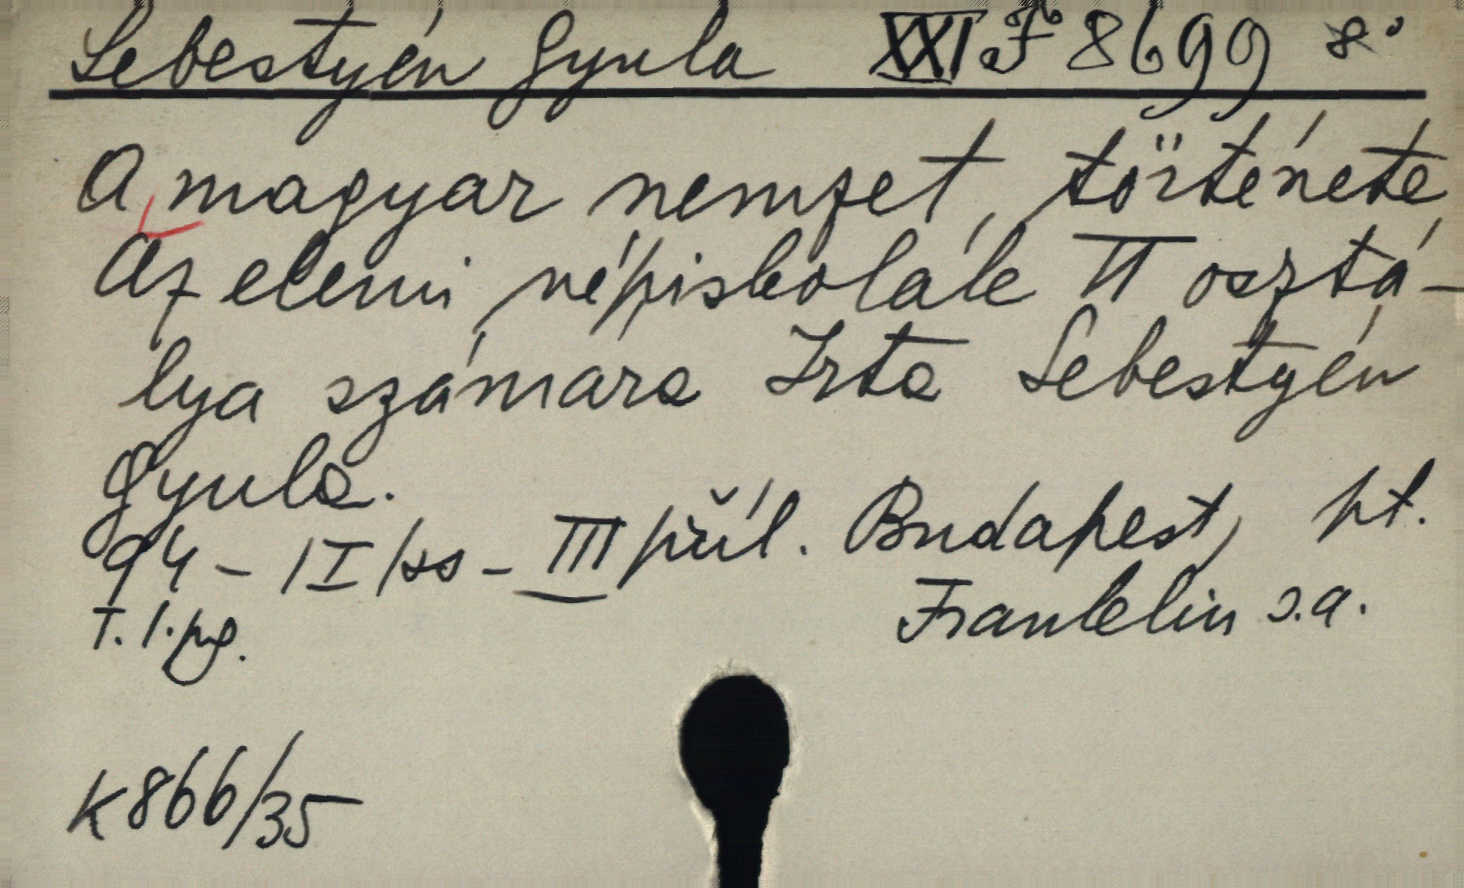 Sebestyén Gyula XXI F 8699 8°
A magyar nemzet története
Az elemi népiskolák VI osztá-
lya számára Irta Sebestyén
Gyula.
94 - I - III příl. Budapest, pt.
T. I. Franklin s.a.
K 866/35